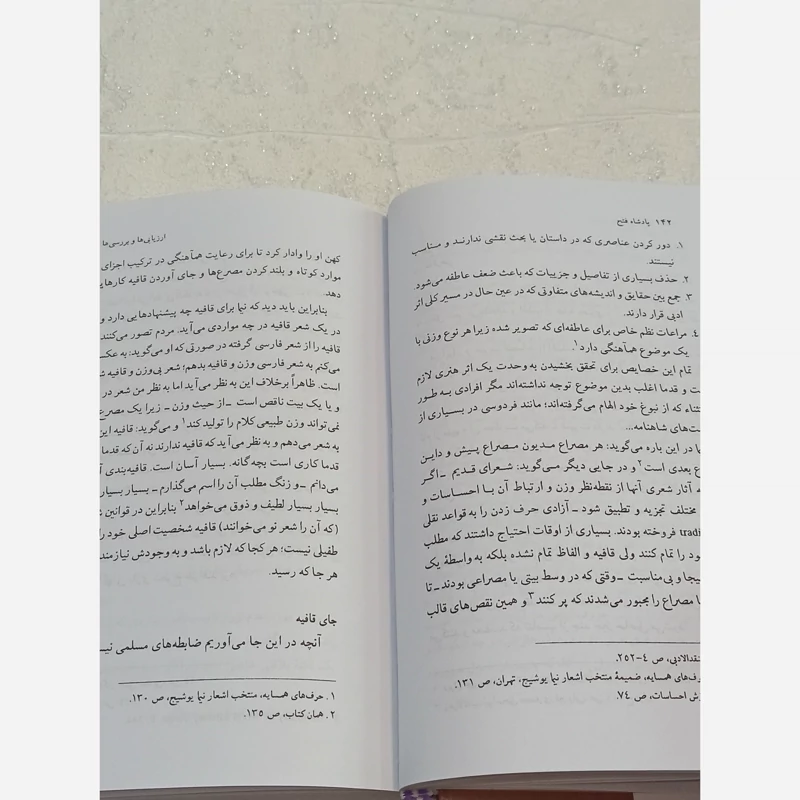 ۱۴۲ پادشاه فتح
۱. دور کردن عناصری که در داستان یا بحث نقشی ندارند و مناسب
نیستند.
۲. حذف بسیاری از تفاصیل و جزییات که باعث ضعف عاطفه می‌شود.
۳. جمع بین حقایق و اندیشه‌های متفاوتی که در عین حال در مسیر کلی اثر
ادبی قرار دارند.
۴. مراعات نظم خاص برای عاطفه‌ای که تصویر شده زیرا هر نوع وزنی با
یک موضوع هماهنگی دارد ۱.
تمام این خصایص برای تحقق بخشیدن به وحدت یک اثر هنری لازم
ت و قدما اغلب بدین موضوع توجه نداشته‌اند مگر افرادی به طور
ثناء که از نبوغ خود الهام می‌گرفته‌اند؛ مانند فردوسی در بسیاری از
ت‌های شاهنامه...
ا در این باره می‌گوید: هر مصراع مدیون مصراع پیش و داین
ع بعدی است ۲ و در جایی دیگر می‌گوید: شعرای قدیم ـ اگر
ه آثار شعری آنها از نقطه‌نظر وزن و ارتباط آن با احساسات و
مختلف تجزیه و تطبیق شود ـ آزادی حرف زدن را به قواعد نقلی
tradi فروخته بودند. بسیاری از اوقات احتیاج داشتند که مطلب
ود را تمام کنند ولی قافیه و الفاظ تمام نشده بلکه به واسطهٔ یک
یجا و بی‌مناسبت ـ وقتی که در وسط بیتی یا مصراعی بودند ـ تا
ا مصراع را مجبور می‌شدند که پر کنند ۳ و همین نقص‌های قالب
نقدالادبی، ص ۴-۲۵۲.
رف‌های همسایه، ضمیمهٔ منتخب اشعار نیما یوشیج، تهران، ص ۱۳۱.
زش احساسات، ص ۷۴.
ارزیابی‌ها و بررسی‌ها
کهن او را وادار کرد تا برای رعایت هماهنگی در ترکیب اجزای
موارد کوتاه و بلند کردن مصرع‌ها و جای آوردن قافیه کارهای
دهد.
بنابراین باید دید که نیما برای قافیه چه پیشنهادهایی دارد و
در یک شعر قافیه در چه مواردی می‌آید. مردم تصور می‌کنند
قافیه را از شعر فارسی گرفته در صورتی که او می‌گوید: به عک
می‌کنم به شعر فارسی وزن و قافیه بدهم؛ شعر بی‌وزن و قافیه ش
است. ظاهراً برخلاف این به نظر می‌آید اما به نظر من شعر در
و یا یک بیت ناقص است ـ از حیث وزن ـ زیرا یک مصرع
نمی‌تواند وزن طبیعی کلام را تولید کند ۱ و می‌گوید: قافیه این
به شعر می‌دهم و به نظر می‌آید که قافیه ندارند نه آن که قدما
قدما کاری است بچه گانه. بسیار آسان است. قافیه‌بندی آ
می‌دانم ـ و زنگ مطلب آن را اسم می‌گذارم ـ بسیار بسیار
بسیار بسیار لطیف و ذوق می‌خواهد ۲ بنابراین در قوانین ش
(که آن را شعر نو می‌خوانند) قافیه شخصیت اصلی خود را
طفیلی نیست؛ هر کجا که لازم باشد و به وجودش نیازمند
هر جا که رسید.
جای قافیه
آنچه در این جا می‌آوریم ضابطه‌های مسلمی نی
۱. حرف‌های همسایه، منتخب اشعار نیما یوشیج، ص ۱۳۰.
۲. همان کتاب، ص ۱۳۵.